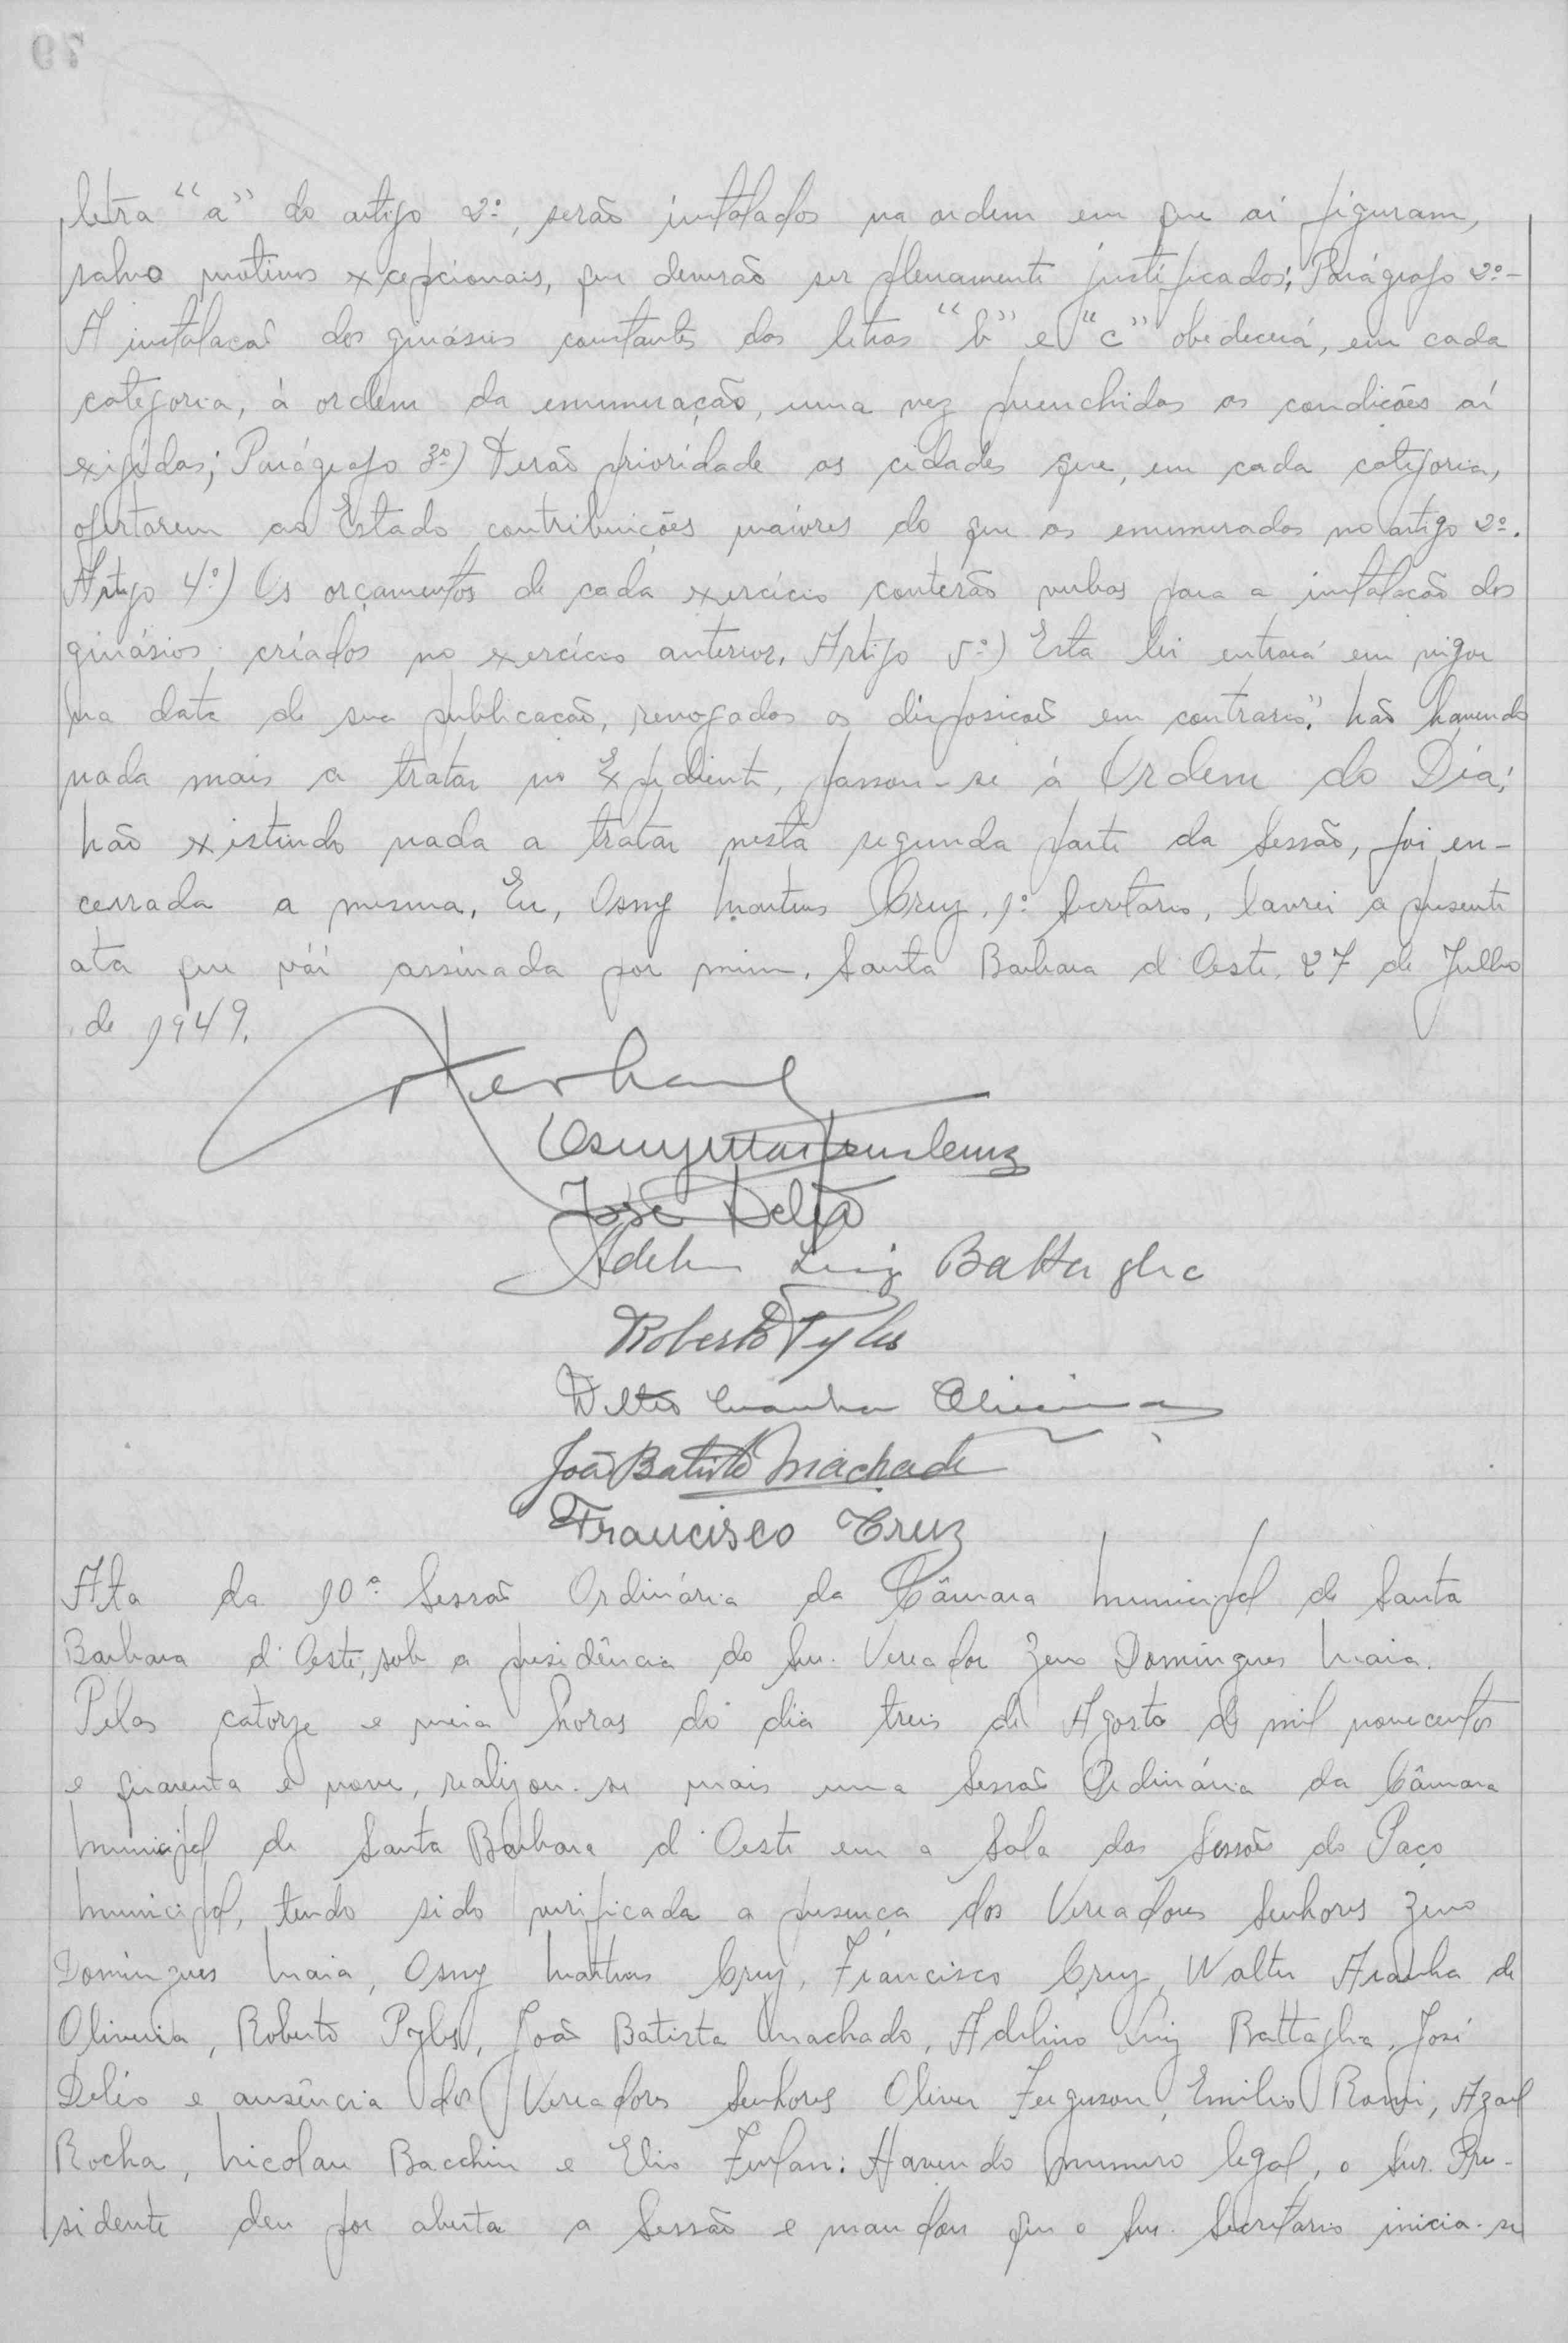 letra "a" do artigo 2º, serão instalados na ordem em que aí figuram,
salvo motivos excepcionais, que deverão ser plenamente justificados; Parágrafo 2º-
A instalação dos ginásios constantes das letras "b" e "c" obedecerá, em cada
categoria, á ordem da enumeração, uma vez preenchidas as condições aí
exigidas; Parágrafo 3º) Terão prioridade as cidades que, em cada categoria,
ofertarem ao Estado contribuições maiores do que as enumeradas no artigo 2º.
Artigo 4º) Os orçamentos de cada exercício conterão verbas para a instalação dos
ginásios criados no exercício anterior. Artigo 5º) Esta lei entrará em vigor
na data de sua publicação, revogadas as disposições em contrario." Não havendo
nada mais a tratar no Expediente, passou-se á Ordem do Dia;
Não existindo nada a tratar nesta segunda parte da Sessão, foi en-
cerrada a mesma. Eu, Osmy Martins Cruz, 1º Secretario, lavrei a presente
ata que vái assinada por mim. Santa Barbara d'Oeste, 27 de Julho
de 1949.
Osmy Martins Cruz
José Deléo
Adelino Luiz Battaglia
Roberto Pyles
Walter Aranha Oliveira
João Batista Machado
Francisco Cruz
Ata da 10ª Sessão Ordinária da Câmara Municipal de Santa
Barbara d'Oeste, sob a presidência do Snr. Vereador Zeno Domingues Maia.
Pelas catorze e meia horas do dia treis de Agosto de mil novecentos
e quarenta e nove, realizou-se mais uma Sessão Ordinária da Câmara
Municipal de Santa Barbara d'Oeste em a Sala das Sessões do Paço
Municipal, tendo sido verificada a presença dos Vereadores Senhores Zeno
Domingues Maia, Osmy Martins Cruz, Francisco Cruz, Walter Aranha de
Oliveira, Roberto Pyles, João Batista Machado, Adelino Luiz Battaglia, José
Deléo e ausência dos Vereadores Senhores Oliver Ferguson, Emilio Romi, Azael
Rocha, Nicolau Bacchin e Elio Furlan: Havendo numero legal, o Snr. Pre-
sidente deu por aberta a Sessão e mandou que o Snr. Secretario inicia-se